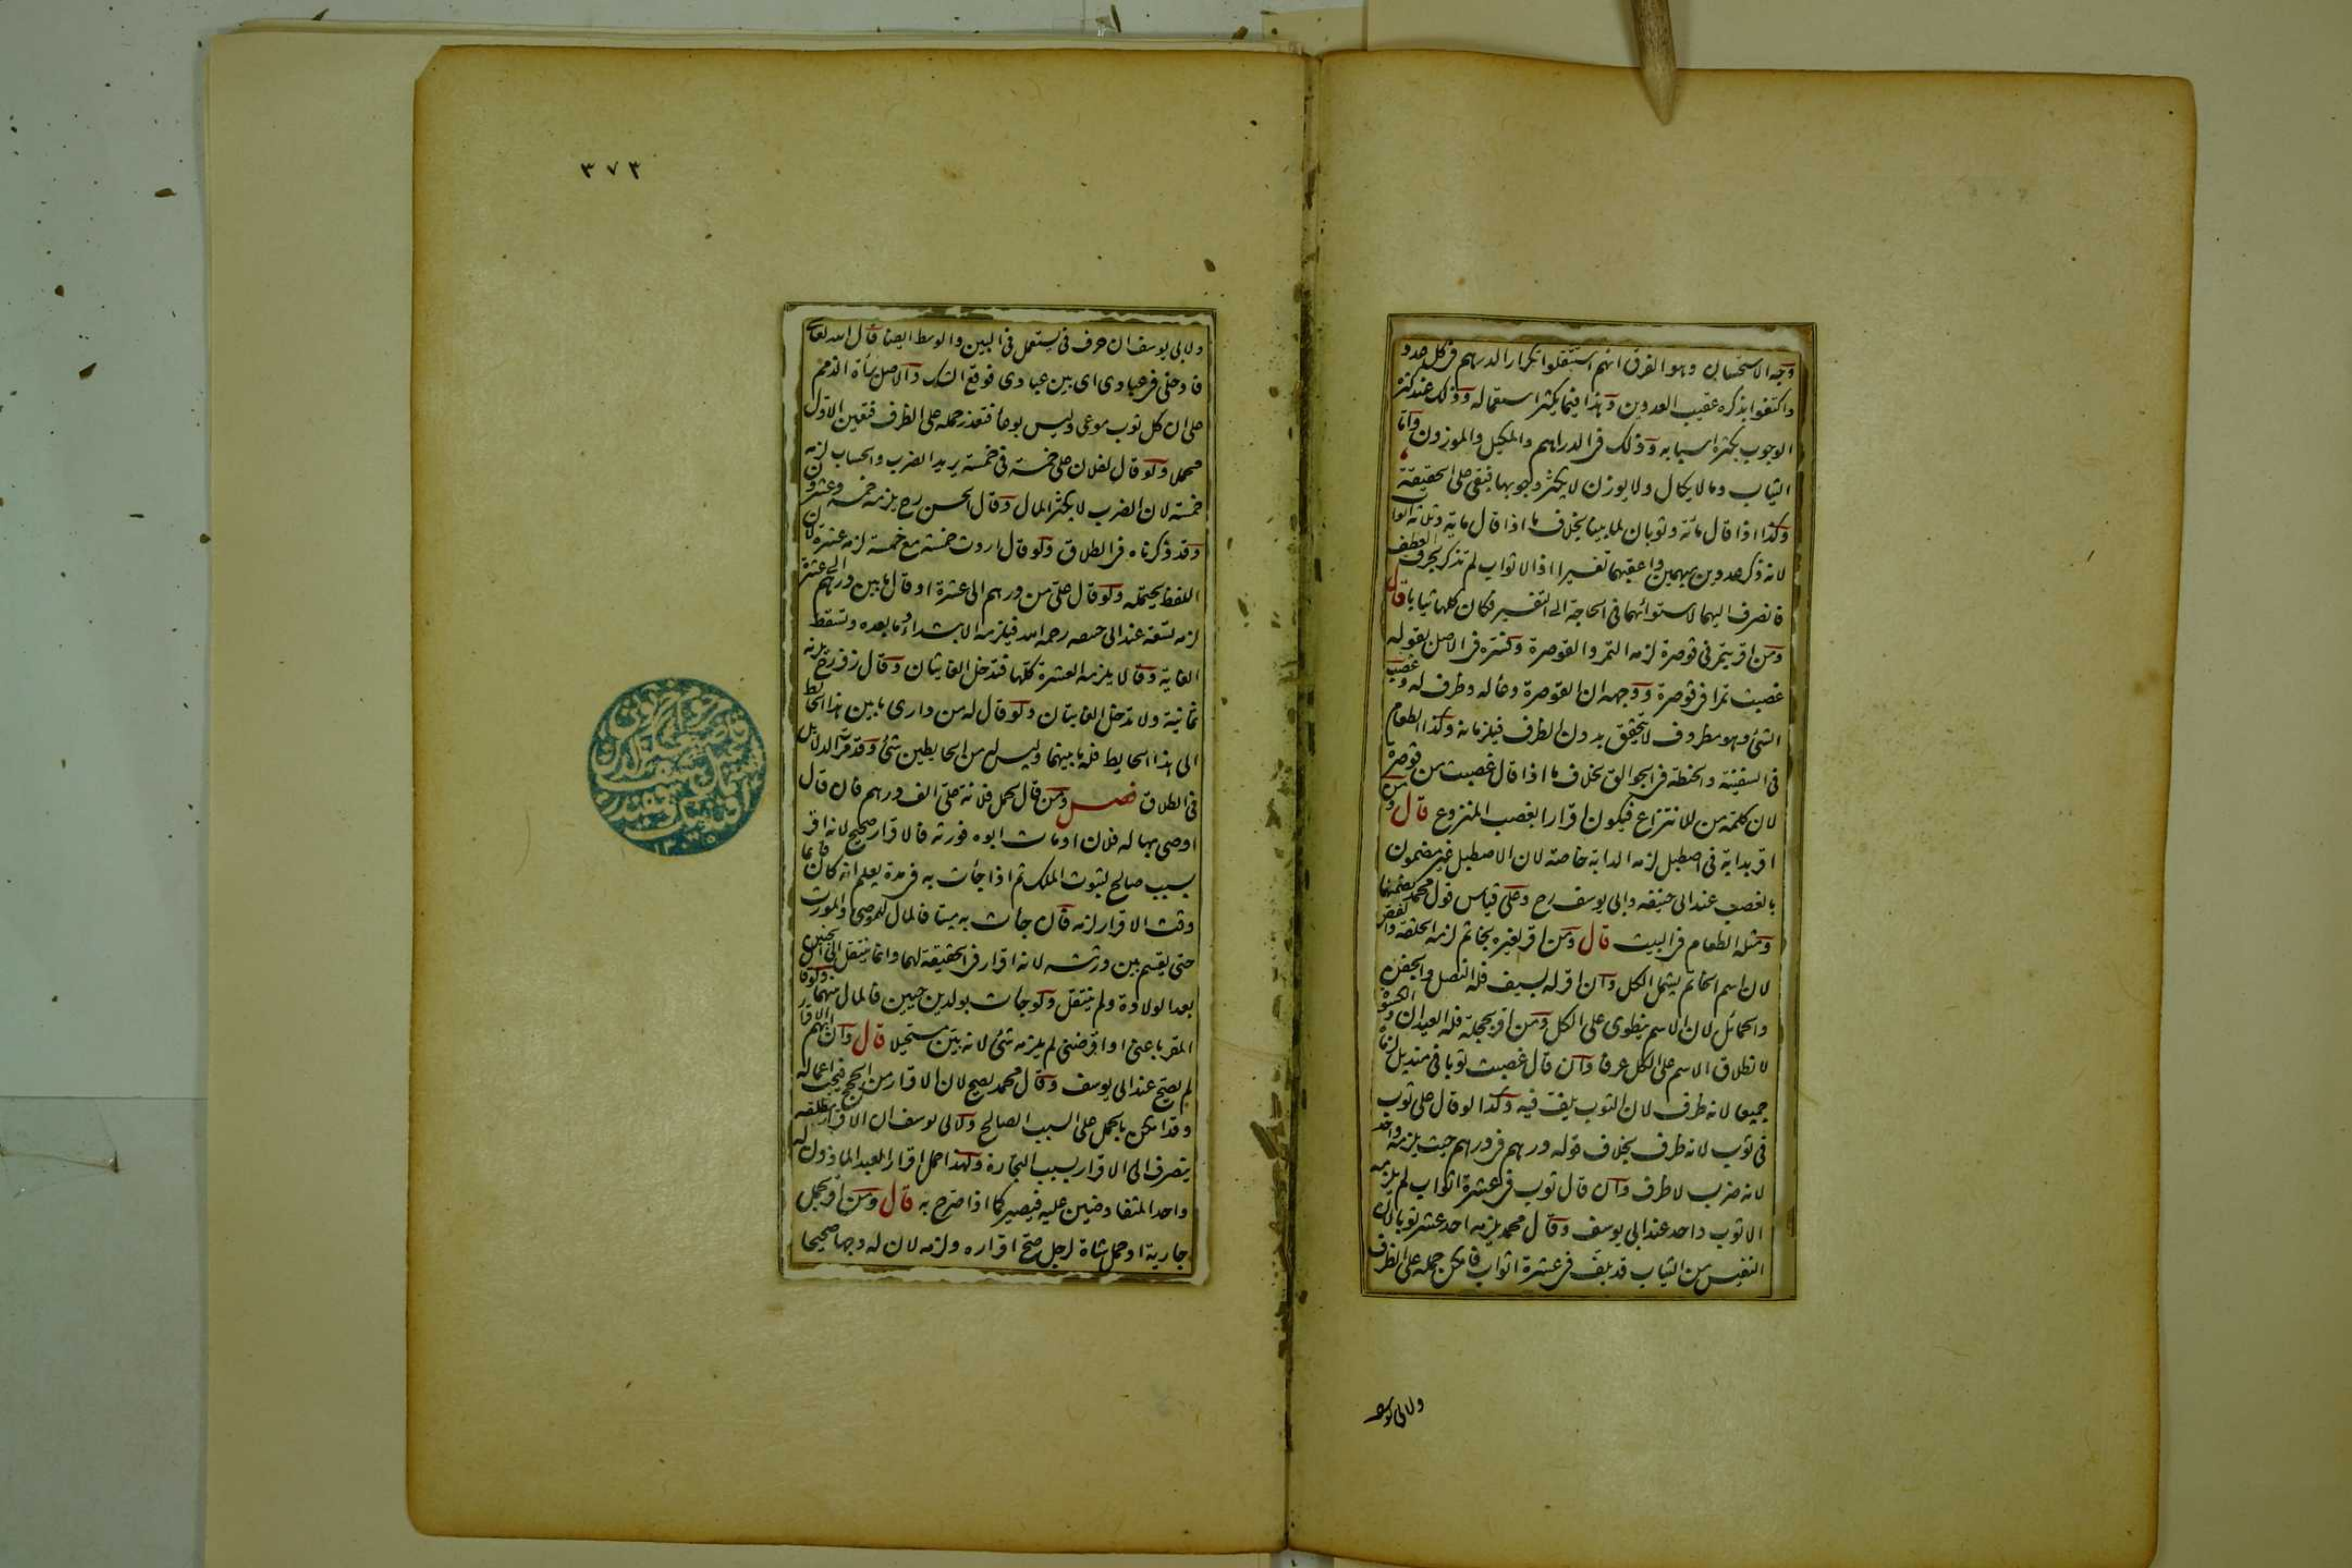 وجه الاستحسان وهو الفرق انهم استثقلوا تكرار الدرهم فى كل عدد
واكتفوا بذكره عقيب العددين وهذا فيما يكثر استعماله وذلك عند كثرة
الوجوب بكثرة اسبابه وذلك فى الدراهم والمكيل والموزون واما
الثياب وما لا يكال ولا يوزن لا يكثر وجوبها فبقى على الحقيقة
وكذا اذا قال مائة وثوبان لما بينا بخلاف ما اذا قال مائة وثلاثة اثواب
لانه ذكر عددين مبهمين واعقبهما تفسيرا اذ الاثواب لم تذكر بحرف العطف
فانصرف اليهما لاستوائهما فى الحاجة الى التفسير فكان كلها ثيابا قال
ومن اقر بتمر فى قوصرة لزمه التمر والقوصرة وفسره فى الاصل بقوله
غصبت تمرا فى قوصرة ووجهه ان القوصرة وعاء له وظرف له وغصب
الشئ وهو مظروف لا يتحقق بدون الظرف فيلزمانه وكذا الطعام
فى السفينة والحنطة فى الجوالق بخلاف ما اذا قال غصبت من قوصرة
لان كلمة من للانتزاع فيكون اقرارا بغصب المنزوع قال ومن
اقر بدابة فى اصطبل لزمه الدابة خاصة لان الاصطبل غير مضمون
بالغصب عند ابى حنيفه وابى يوسف رح وعلى قياس قول محمد يضمنهما
ومثله الطعام فى البيت قال ومن اقر لغيره بخاتم لزمه الحلقة والفص
لان اسم الخاتم يشمل الكل وان اقر له بسيف فله النصل والجفن
والحمائل لان الاسم ينطوى على الكل ومن اقر بحجلة فله العيدان والكسوة
لانطلاق الاسم على الكل عرفا وان قال غصبت ثوبا فى منديل لزماه
جميعا لانه ظرف لان الثوب يلف فيه وكذا لو قال على ثوب
فى ثوب لانه ظرف بخلاف قوله درهم فى درهم حيث يلزمه واحد
لانه ضرب لا ظرف وان قال ثوب فى عشرة اثواب لم يلزمه
الا ثوب واحد عند ابى يوسف وقال محمد يلزمه احد عشر ثوبا لان
النفيس من الثياب قد يلف فى عشرة اثواب فامكن حمله على الظرف
ولابى يوسف
٣٧٣
ولابى يوسف ان حرف فى يستعمل فى البين والوسط ايضا قال الله تعالى
فادخلى فى عبادى اى بين عبادى فوقع الشك والاصل براة الذمم
على ان كل ثوب موعى وليس بوعاء فتعذر حمله على الظرف فتعين الاول
محملا ولو قال لفلان على خمسة فى خمسة يريد الضرب والحساب لزمه
خمسة لان الضرب لا يكثر المال وقال الحسن رح يلزمه خمسة وعشرون
وقد ذكرناه فى الطلاق ولو قال اردت خمسة مع خمسة لزمه عشرة لان
اللفظ يحتمله ولو قال على من درهم الى عشرة او قال ما بين درهم الى عشرة
لزمه تسعة عند ابى حنيفه رحمه الله فيلزمه الابتداء وما بعده وتسقط
الغاية وقالا يلزمه العشرة كلها فتدخل الغايتان وقال زفر رح يلزمه
ثمانية ولا تدخل الغايتان ولو قال له من دارى ما بين هذا الحائط
الى هذا الحايط فله ما بينهما وليس له من الحايطين شئ وقد مرت الدلايل
فى الطلاق فصل ومن قال لحمل فلانة على الف درهم فان قال
اوصى بها له فلان او مات ابوه فورثه فالاقرار صحيح لانه اقر
بسبب صالح لثبوت الملك ثم اذا جأت به فى مدة يعلم انه كان قائما
وقت الاقرار لزمه فان جأت به ميتا فالمال للموصى والمورث
حتى يقسم بين ورثته لانه اقرار فى الحقيقة لهما وانما ينتقل الى الجنين
بعد الولادة ولم ينتقل ولو جأت بولدين حيين فالمال بينهما ولو قال
المقر باعنى او اقرضنى لم يلزمه شئ لانه بين مستحيلا قال وان ابهم الاقرار
لم يصح عند ابى يوسف وقال محمد يصح لان الاقرار من الحجج فيجب اعماله
وقد امكن بالحمل على السبب الصالح ولابى يوسف ان الاقرار مطلقه
ينصرف الى الاقرار بسبب التجارة ولهذا حمل اقرار العبد الماذون له
واحد المتفاوضين عليه فيصير كما اذا صرح به قال ومن اقر بحمل
جارية او حمل شاة لرجل صح اقراره ولزمه لان له وجها صحيحا